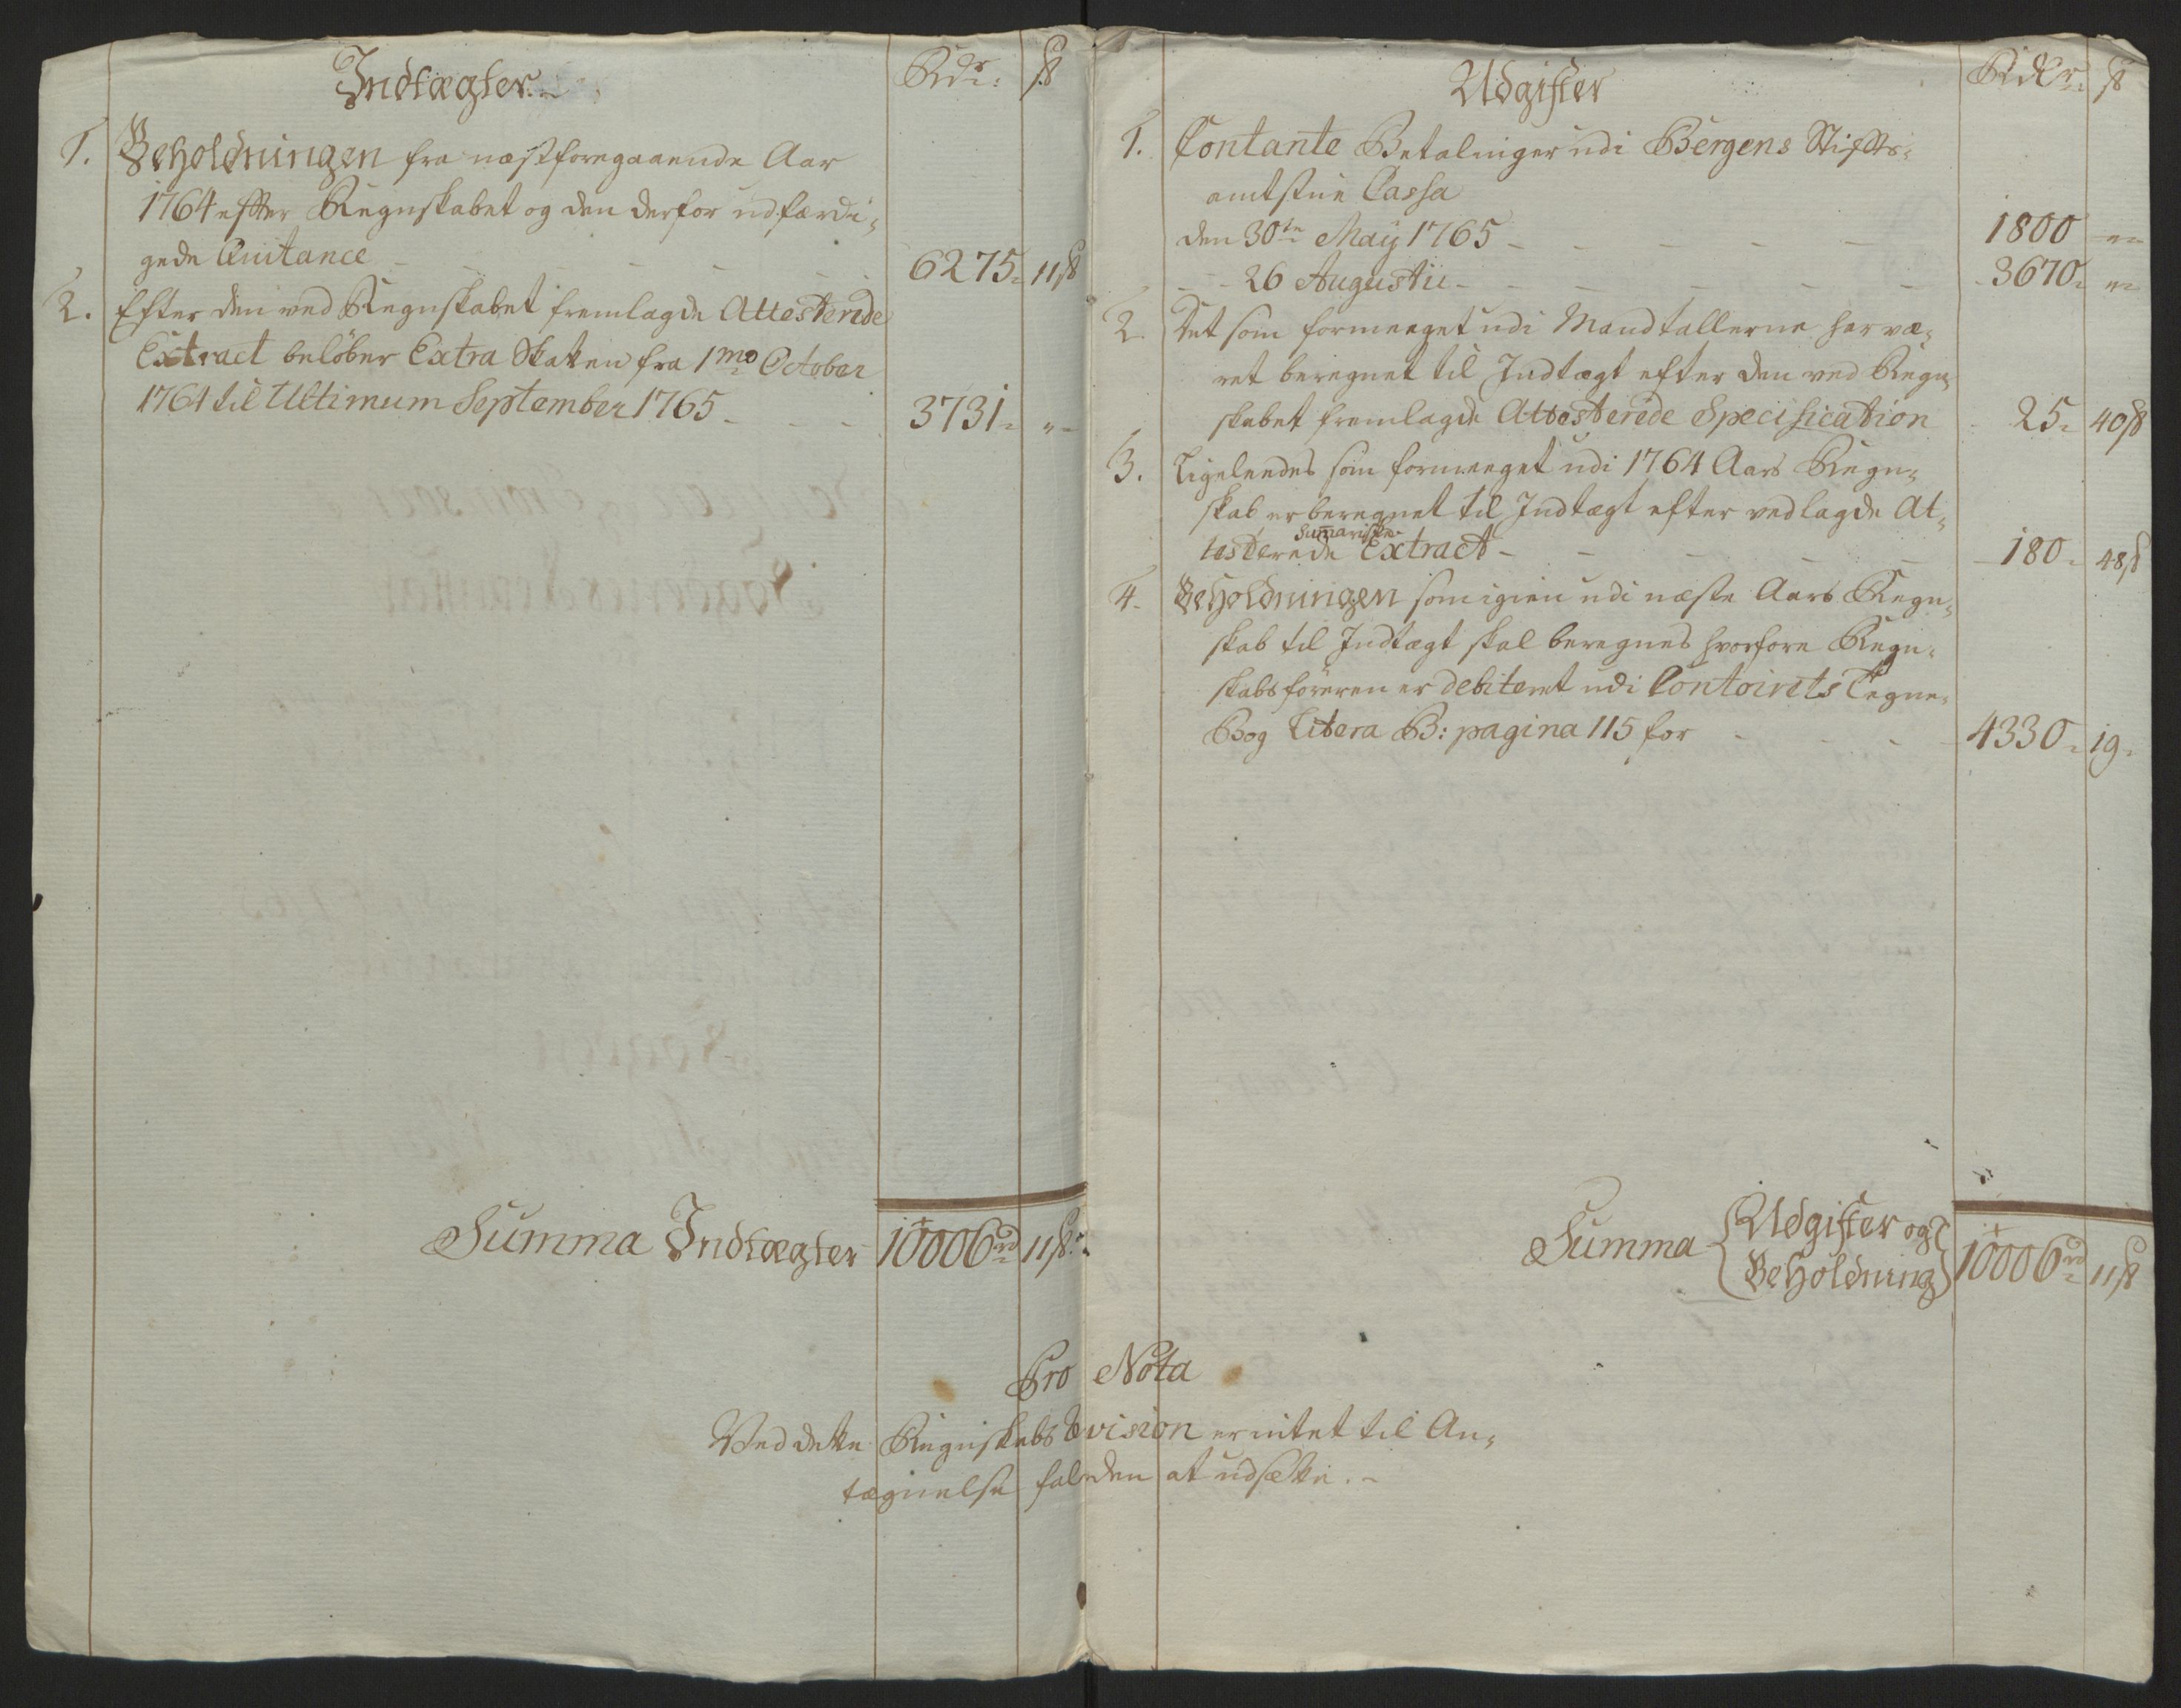 Indtægter
Rdr: ß
1. Beholdningen fra næstforegaaende Aar
1764 efter Regnskabet og den derfor udfærdi-
gede Quitance - - - - 6275. 11 ß
2. Efter den ved Regnskabet fremlagde Attesterede
Extract beløber Extra Skatten fra 1mo October
1764 til Ultimum September 1765 - - - 3731. "-
Summa Indtægter 10006rd 11 ß.
Udgifter
Rdlr: ß
1. Contante Betalinger udi Bergens Stifts-
amtstue Cassa
den 30te Maij 1765 - - - - - 1800 "-
- - 26 Augustii - - - - - - 3670. "-
2. Det som formeeget udi Mandtallerne har væ-
ret beregnet til Indtægt efter den ved Regn-
skabet fremlagde Attesterede Specification - 25. 40 ß
3. Ligeleedes som formeeget udi 1764 Aars Regn-
skab er beregnet til Indtægt efter vedlagde At-
testerede Sum̅ariske Extract - - - - 180. 48 ß
4. Beholdningen som igien udi næste Aars Regn-
skab til Indtægt skal beregnes hvorfore Regn-
skabsføreren er debiteret udi Contoirets Tegne-
Bog Litera B: pagina 115 for - - - 4330. 19.
Summa { Udgifter og
Beholdning } 10006rd 11 ß
Pro Nota
Ved dette Regnskabs Revision er intet til An-
tegnelse falden at udsætte. -